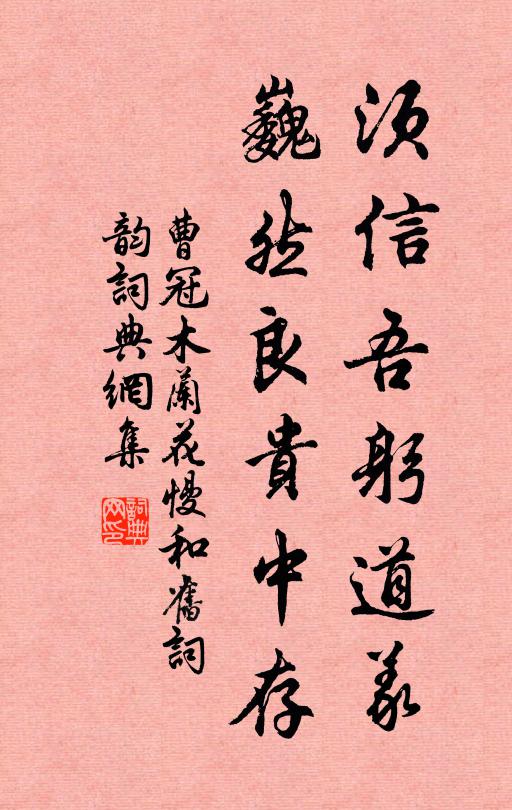 須信吾躬道義
巍然良貴中存
曹冠木蘭花慢和舊詞
韵詞典網集
詞典网印